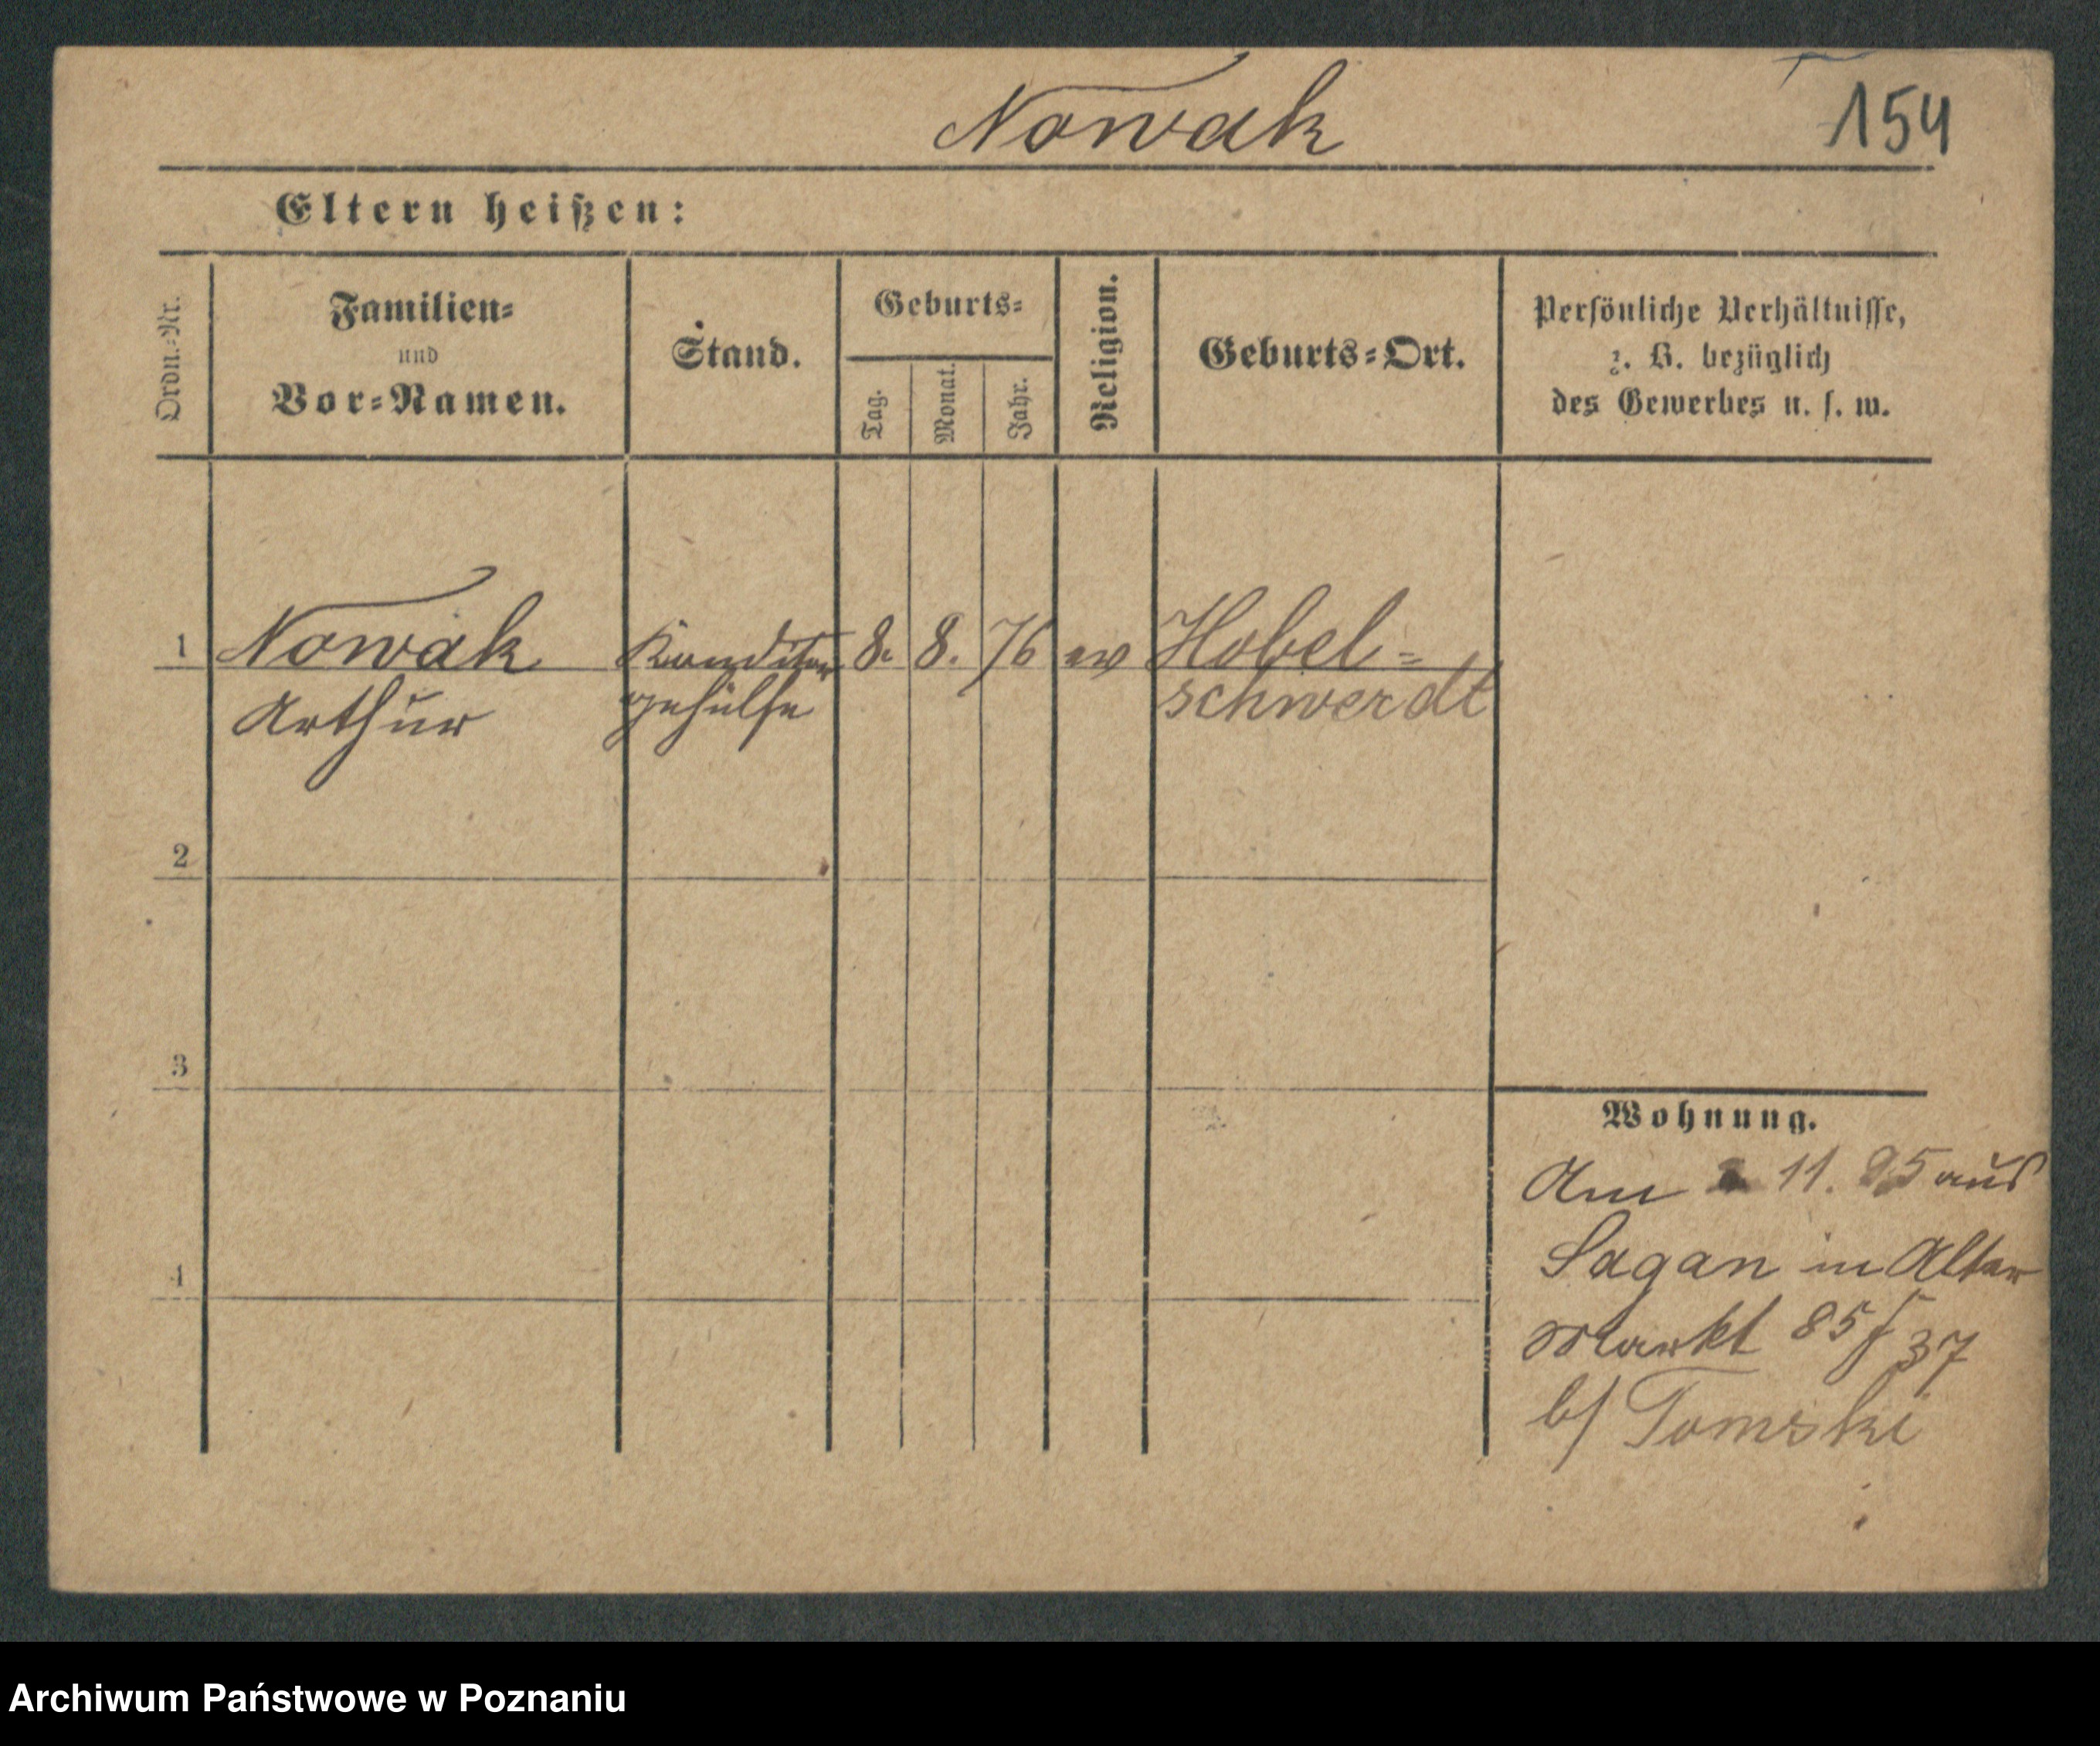 Nowak
154
Eltern heißen:
Ordn.-Nr.
Familien-
und
Vor-Namen.
Stand.
Geburts-
Tag.
Monat.
Jahr.
Religion.
Geburts-Ort.
Persönliche Verhältnisse,
z. B. bezüglich
des Gewerbes u. s. w.
1 Nowak Konditor 8. 8. 76 ev Hobel-
Arthur gehülfe schwerdt
2
3
4
Wohnung.
Am 11. 95 aus
Sagan in Alter
Markt 85/37
b/ Tomski
Archiwum Państwowe w Poznaniu